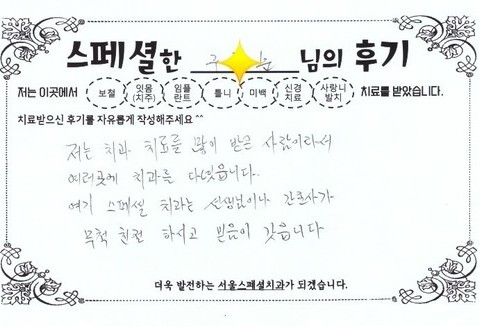 스페셜한 님의 후기
저는 이곳에서 보철 잇몸(치주) 임플란트 틀니 미백 신경치료 사랑니발치 치료를 받았습니다.
치료받으신 후기를 자유롭게 작성해주세요 ^^
저는 치과 치료를 많이 받은 사람이라서
여러곳에 치과를 다녔읍니다.
여기 스페셜 치과는 선생님이나 간호사가
무척 친전 하시고 믿음이 갓읍니다
더욱 발전하는 서울스페셜치과가 되겠습니다.